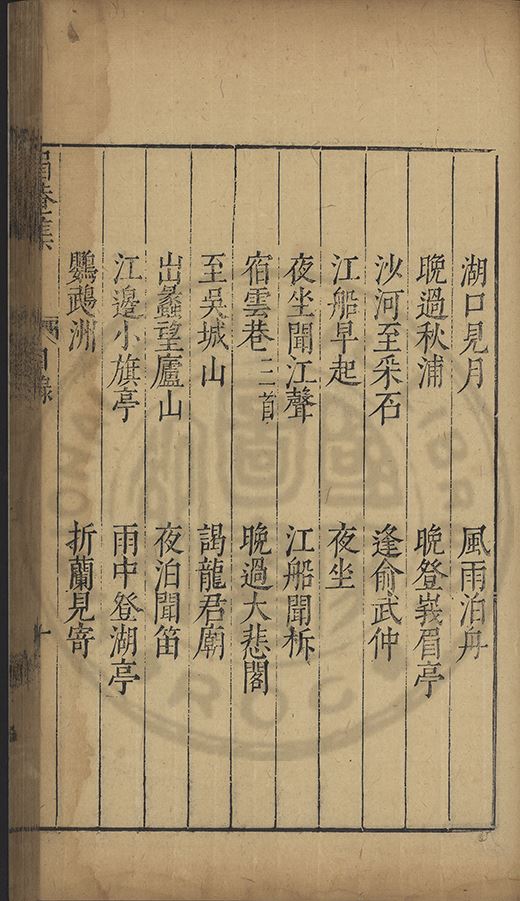 湖口見月　風雨泊舟
晚過秋浦　晚登峩眉亭
沙河至采石　逢俞武仲
江船早起　夜坐
夜坐聞江聲　江船聞柝
宿雲巷二首　晚過大悲閣
至吳城山　謁龍君廟
出蠡望廬山　夜泊聞笛
江邊小旗亭　雨中登湖亭
鸚鵡洲　折蘭見寄
目錄